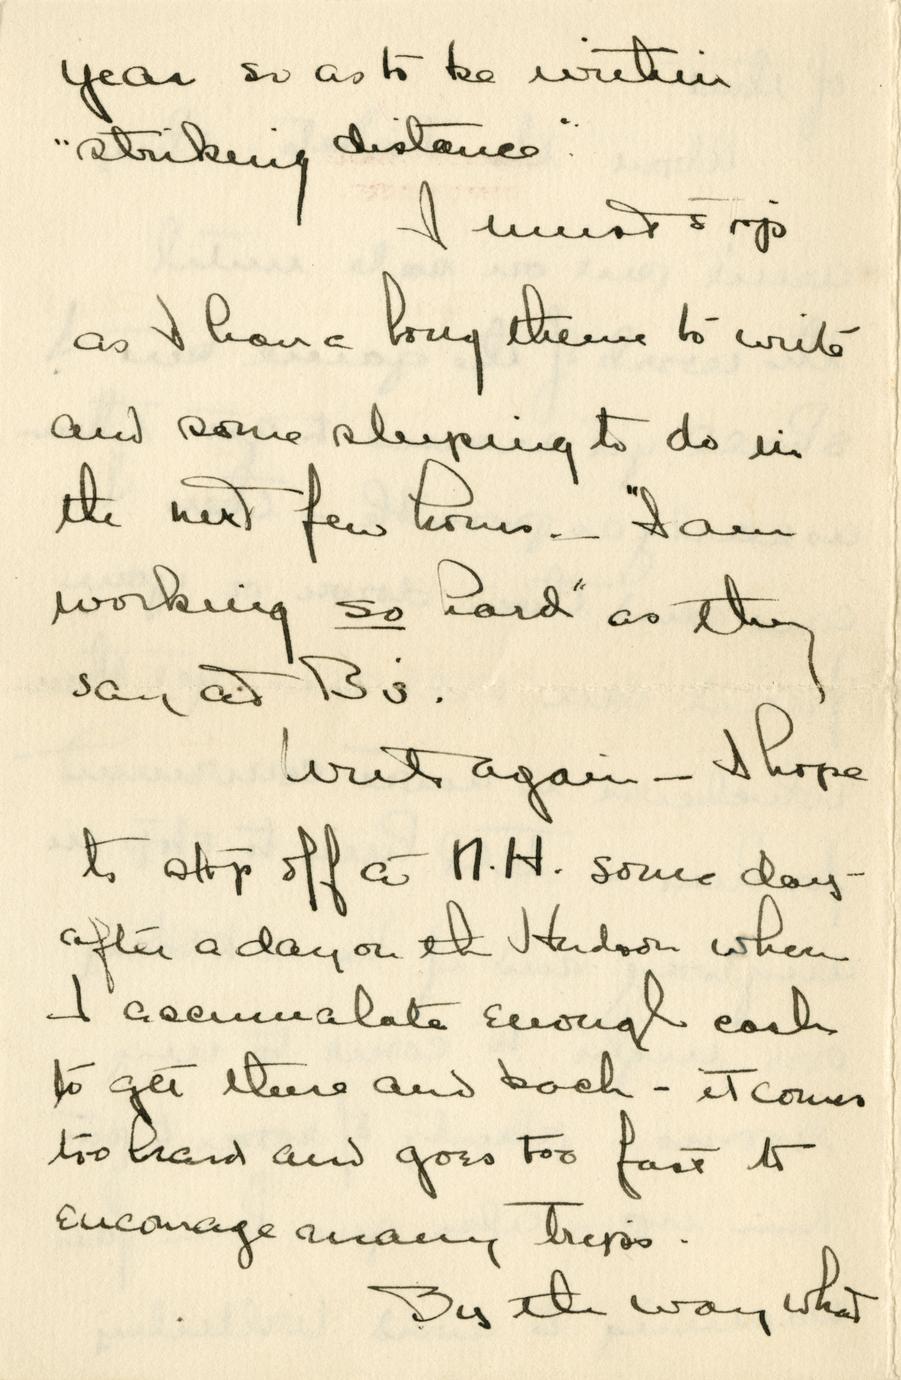 year so as to be within
"striking distance".
I must stop
as I have a long theme to write
and some sleeping to do in
the next few hours. — "I am
working so hard" as they
say at B's.
Write again — I hope
to stop off at N.H. some day
after a day on the Hudson when
I accumulate enough cash
to get there and back - it comes
too hard and goes too fast to
encourage many trips.
By the way what